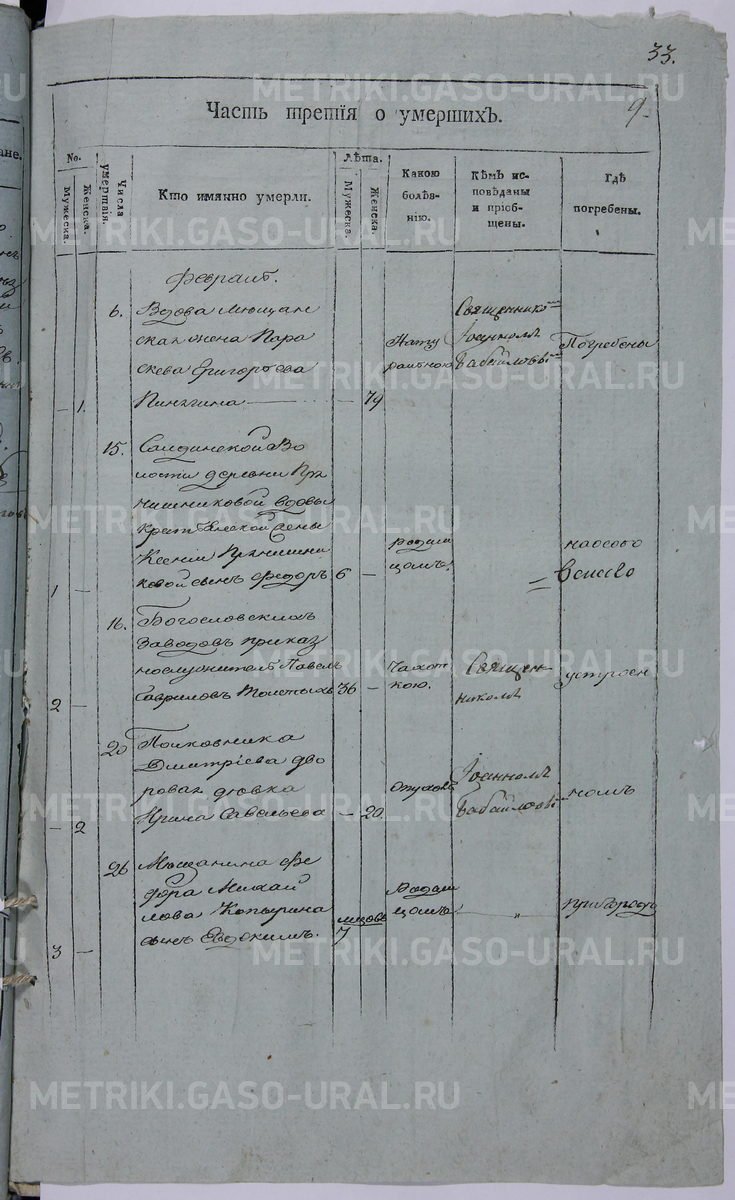 33.
9.
Часть третія о умершихъ.
No.
Мужеска.
Женска.
Числа умертвія.
Кто имянно умерли.
лѣта.
Мужеска.
Женска.
Какою болѣз-
нію.
Кѣмъ ис-
повѣданы
и пріоб-
щены.
Гдѣ
погребены.
Февраль.
6. Вдова мѣщан
ская жена Пара
скева Григорьева
1. Пинягина — 79
Нату
ральною
Священнико
Іоанномъ
Бабайловы
Погребены
15. Салдинской Во
лости деревни Пря
нишниковой вдовы
крестьянской жены
Ксеніи Прянишни
1 — ковой сынъ Федоръ 6 —
Родим
цомъ.
на особо
16. Богословскихъ
Заводовъ приказ
нослужитель Павелъ
2 — Гавриловъ Толстыхъ 36 —
Чахот
кою.
Священ
никомъ
устроен
20 Полковника
Дмитріева дво
ровая девка
— 2 Ирина Савельева — 20
Іоанномъ
Бабайловы
номъ
26 Мѣщанина Фе
дора Михай
лова Копырина
3 — сынъ Евдокимъ. мцовъ 7
Родим
цомъ
METRIKI.GASO-URAL.RU